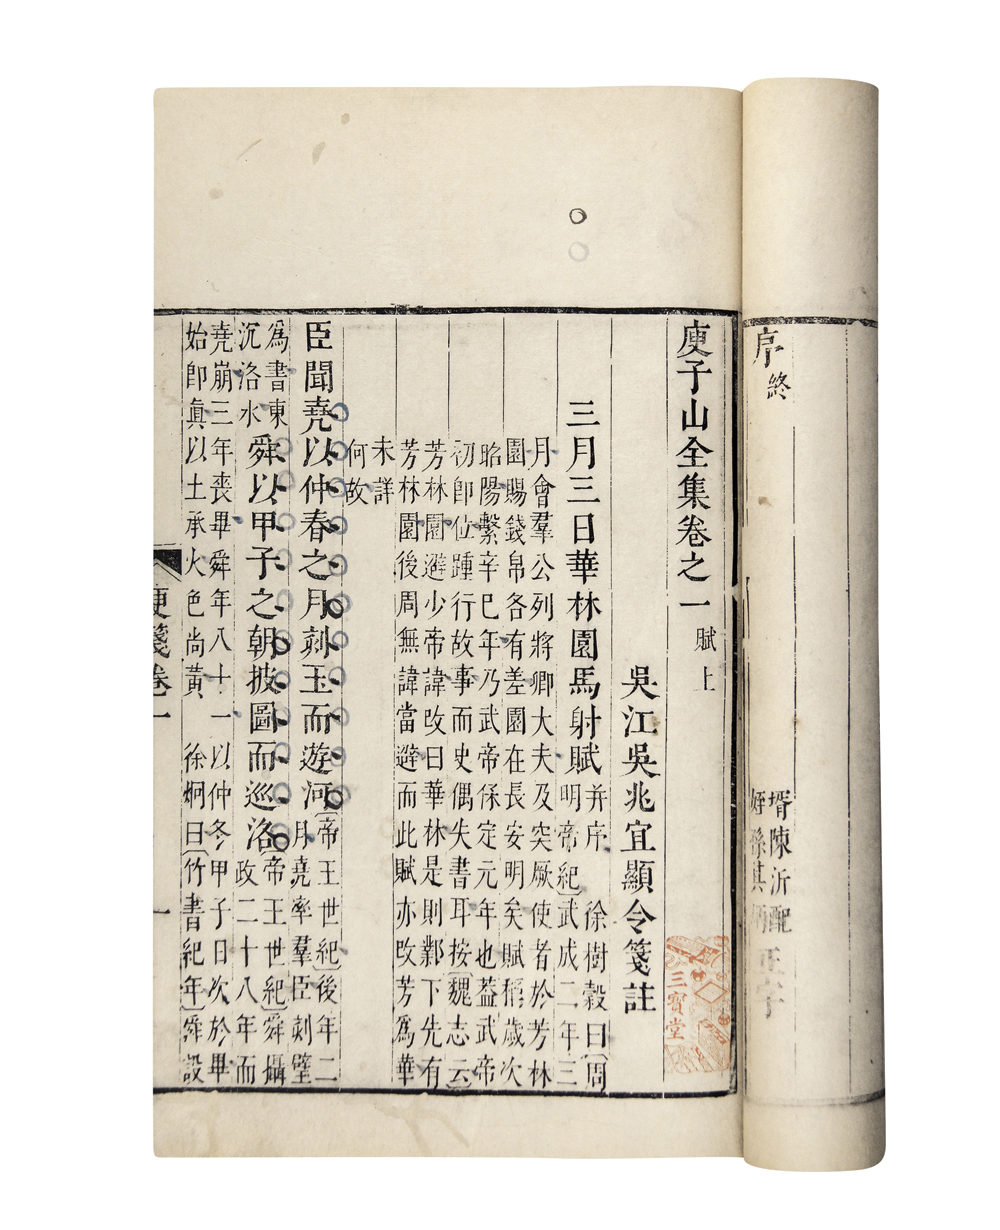 序終
壻陳沂配
姪孫其炳
正字
庾子山全集卷之一 賦上
吳江吳兆宜顯令箋註
三月三日華林園馬射賦并序 徐樹穀曰〔周
明帝紀〕武成二年三
月會羣公列將卿大夫及突厥使者於芳林
園賜錢帛各有差園在長安明矣賦稱歲次
昭陽繫辛巳年乃武帝保定元年也葢武帝
初卽位踵行故事而史偶失書耳按〔魏志云〕
芳林園避少帝諱改曰華林是則鄴下先有
芳林園後周無諱當避而此賦亦改芳爲華
未詳
何故
臣聞堯以仲春之月刻玉而遊河〔帝王世紀〕後年二
月堯率羣臣刻璧
爲書東
沉洛水
舜以甲子之朝披圖而巡洛〔帝王世紀〕舜攝
政二十八年而
堯崩三年喪畢舜年八十一以仲冬甲子日次於畢
始卽眞以土承火色尚黃 徐炯曰〔竹書紀年〕舜設
庾箋卷一
一
三寶堂